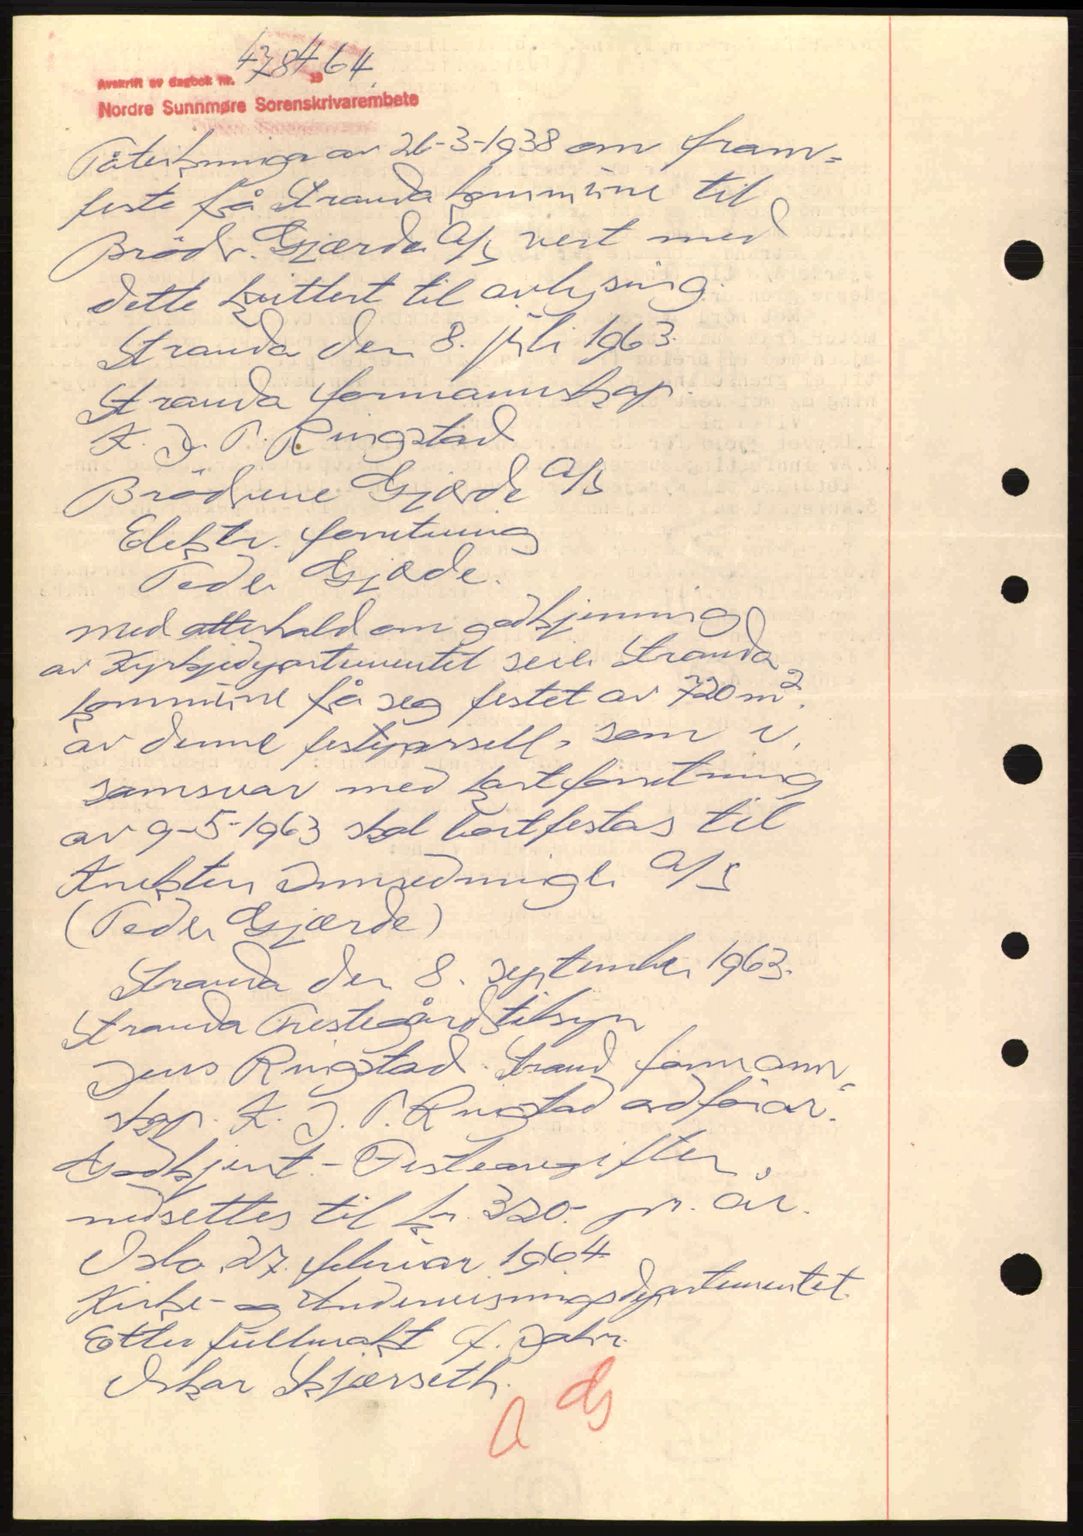 Avskrift av dagbok nr. 4784 19 64
Nordre Sunnmøre Sorenskrivarembete
Påteikninga av 26-3-1938 om fram-
feste frå Stranda kommune til
Brødr. Gjærde A/S vert med
dette kvittert til avlysing.
Stranda den 8. juli 1963.
Stranda formannskap.
K. J. P. Ringstad
Brødrene Gjærde A/S
Elektr. forretning
Peder Gjærde.
Med atterhald om godkjenning
av Kyrkjedepartementet seier Stranda
kommune frå seg festet av 720 m².
av denne festeparsell, som i
samsvar med kartforretning
av 9-5-1963 skal bortfestas til
Knekten Innredningen A/S
(Peder Gjærde)
Stranda den 8. september 1963.
Stranda Prestegårdstilsyn
Jens Ringstad. Strand formann-
skap. K. J. P. Ringstad ordførar.
Godkjent - Festeavgiften
nedsettes til kr. 320.- pr. år.
Oslo, 27. februar 1964
Kirke- og Undervisningsdepartementet.
Etter fullmakt
Oskar Skjærseth.